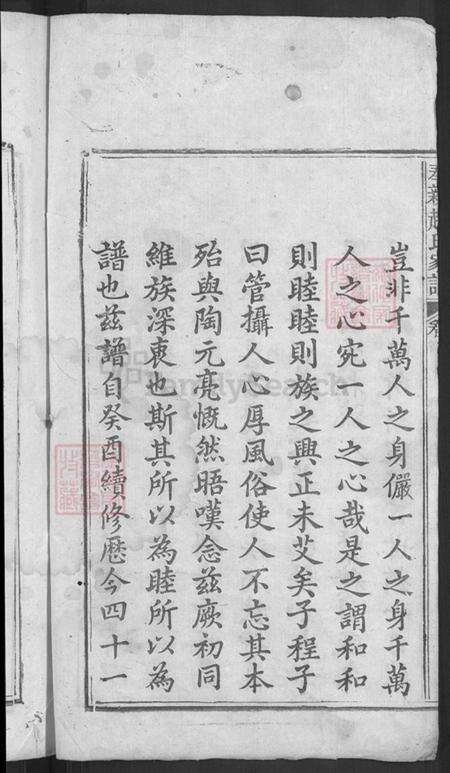 豈非千萬人之身儼一人之身千萬
人之心宛一人之心哉是之謂和和
則睦睦則族之興正未艾矣子程子
曰管攝人心厚風俗使人不忘其本
殆與陶元亮慨然晤嘆念茲厥初同
維族深衷也斯其所以為睦所以為
譜也茲譜自癸酉續修歷今四十一
FamilySearch